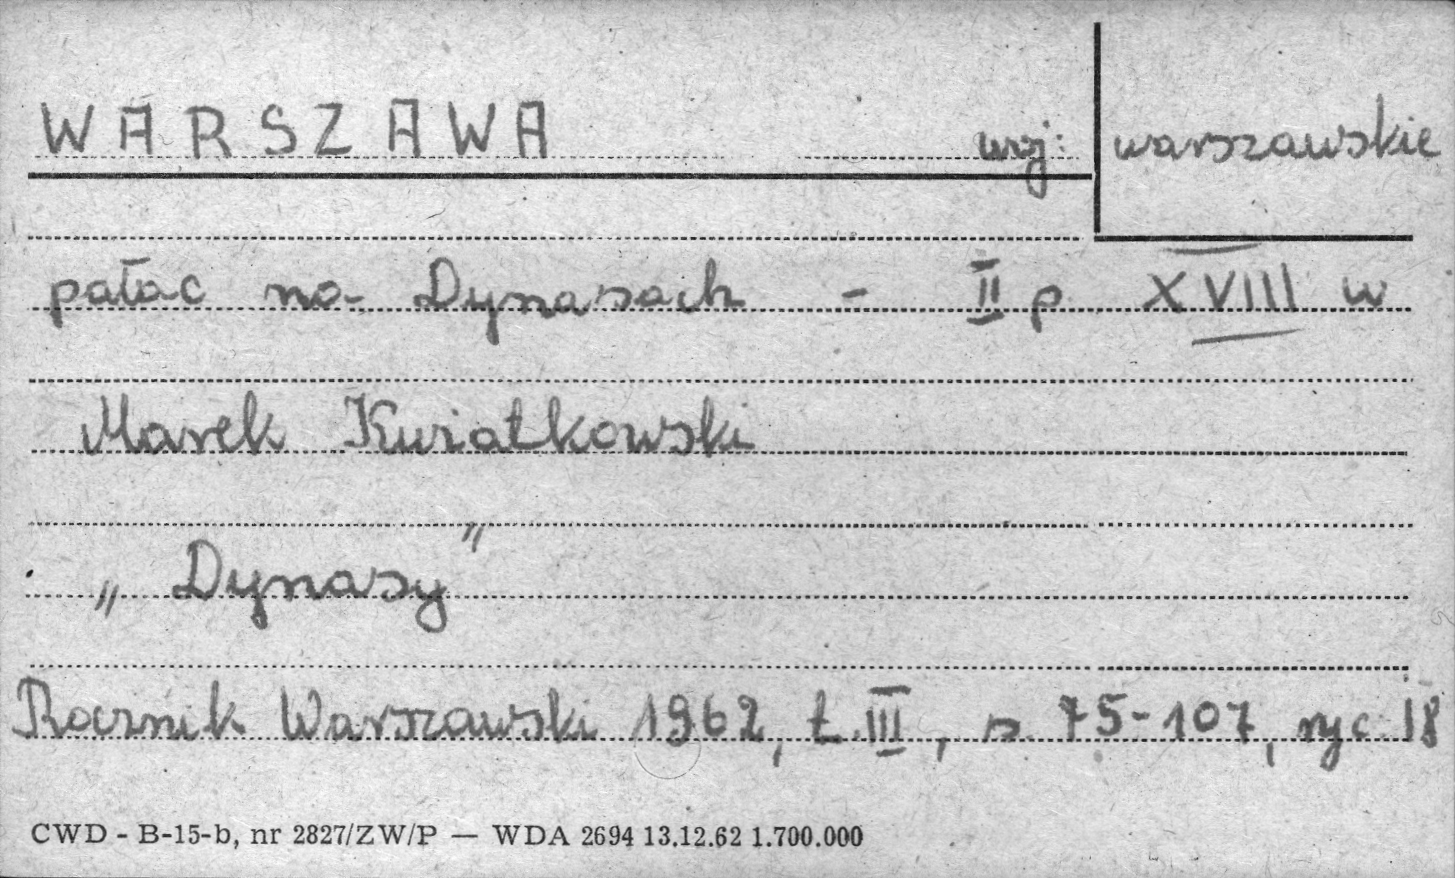 WARSZAWA woj: warszawskie
pałac na Dynasach - II p XVIII w
Marek Kwiatkowski
„Dynasy"
Rocznik Warszawski 1962, t. III, s. 75-107, ryc 18
CWD - B-15-b, nr 2827/ZW/P — WDA 2694 13.12.62 1.700.000